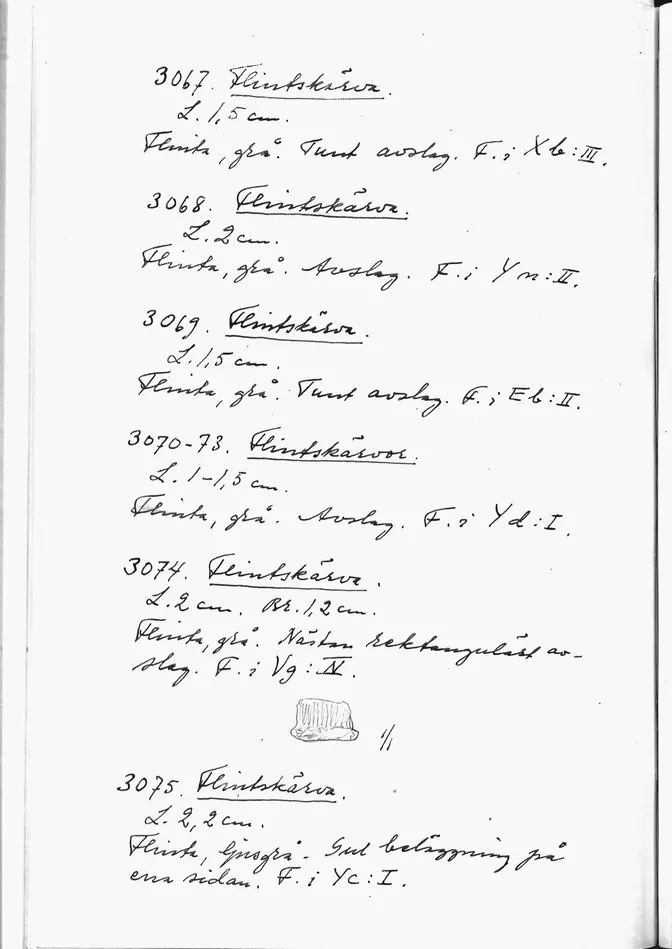 3067. Flintskärva.
L. 1,5 cm.
Flinta, grå. Tunt avslag. F. i Xb:III.
3068. Flintskärva.
L. 2 cm.
Flinta, grå. Avslag. F. i Yn:II.
3069. Flintskärva.
L. 1,5 cm.
Flinta, grå. Tunt avslag. F. i Eb:II.
3070-73. Flintskärvor.
L. 1-1,5 cm.
Flinta, grå. Avslag. F. i Yd:I.
3074. Flintskärva.
L. 2 cm. Br. 1,2 cm.
Flinta, grå. Nästan rektangulärt av-
slag. F. i Vg:IV.
1/1
3075. Flintskärva.
L. 2,2 cm.
Flinta, ljusgrå. Gul beläggning på
ena sidan. F. i Yc:I.